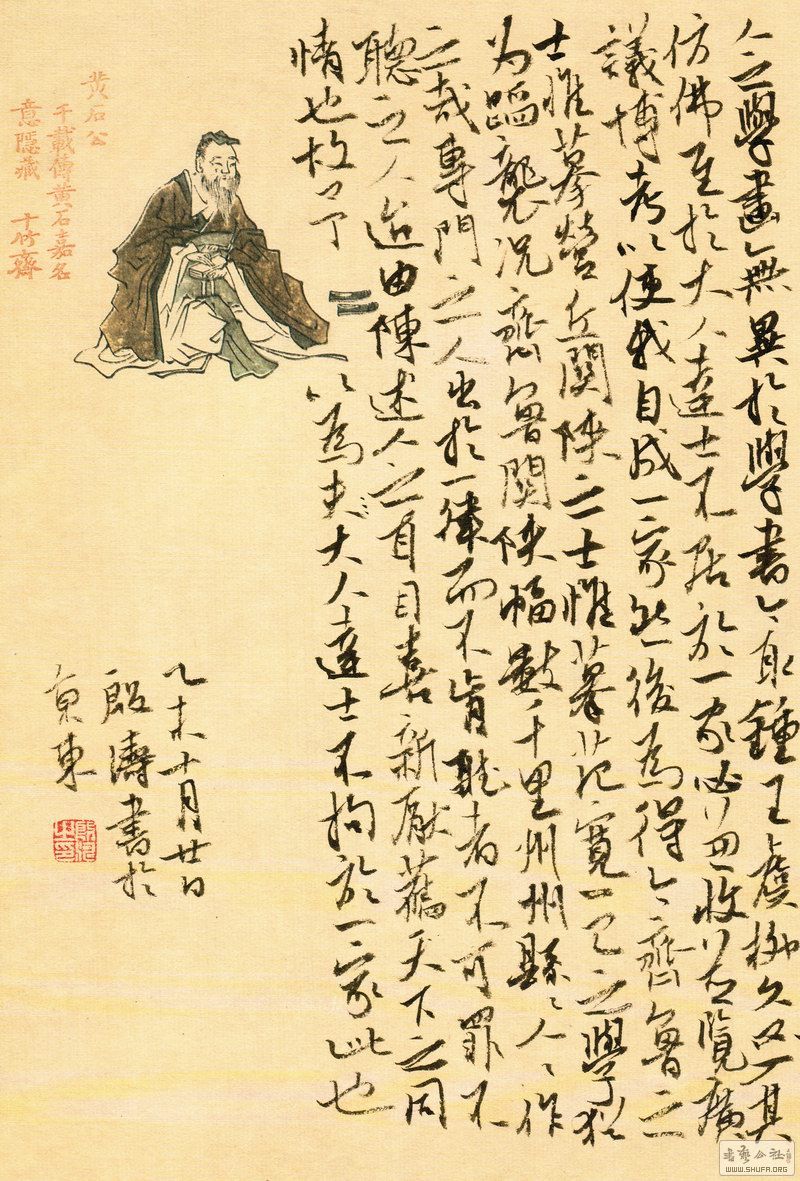 人之學畫無異於學書今取鍾王虞柳久必入其
仿佛至於大人達士不拘於一家必兼收並覽廣
議博考以使我自成一家然後為得今齊魯之
士惟摹營丘關陝之士惟摹范寬一己之學猶
为蹈襲況齊魯關陝幅數千里州州縣々人々作
之哉專門之人出於一律而不肯聽者不可罪不
聽之人迨由陳述人之耳目喜新厭舊天下之同
情也故予 以為夫大人達士不拘於一家此也
乙未十月廿日
殷濤書於
京東
黄石公
千載傳黄石嘉名
意隱藏 十竹齋
書藝公社
WWW.SHUFA.ORG